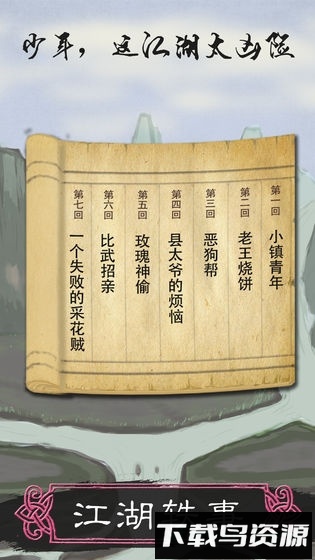 少年，这江湖太凶险
第一回 小镇青年
第二回 老王烧饼
第三回 恶狗帮
第四回 县太爷的烦恼
第五回 玫瑰神偷
第六回 比武招亲
第七回 一个失败的采花贼
江湖轶事
下载鸟资源
www.downbird.com